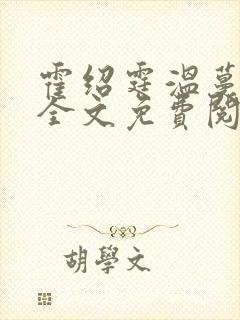 霍绍霆温蔓
全文免費閱
胡學文